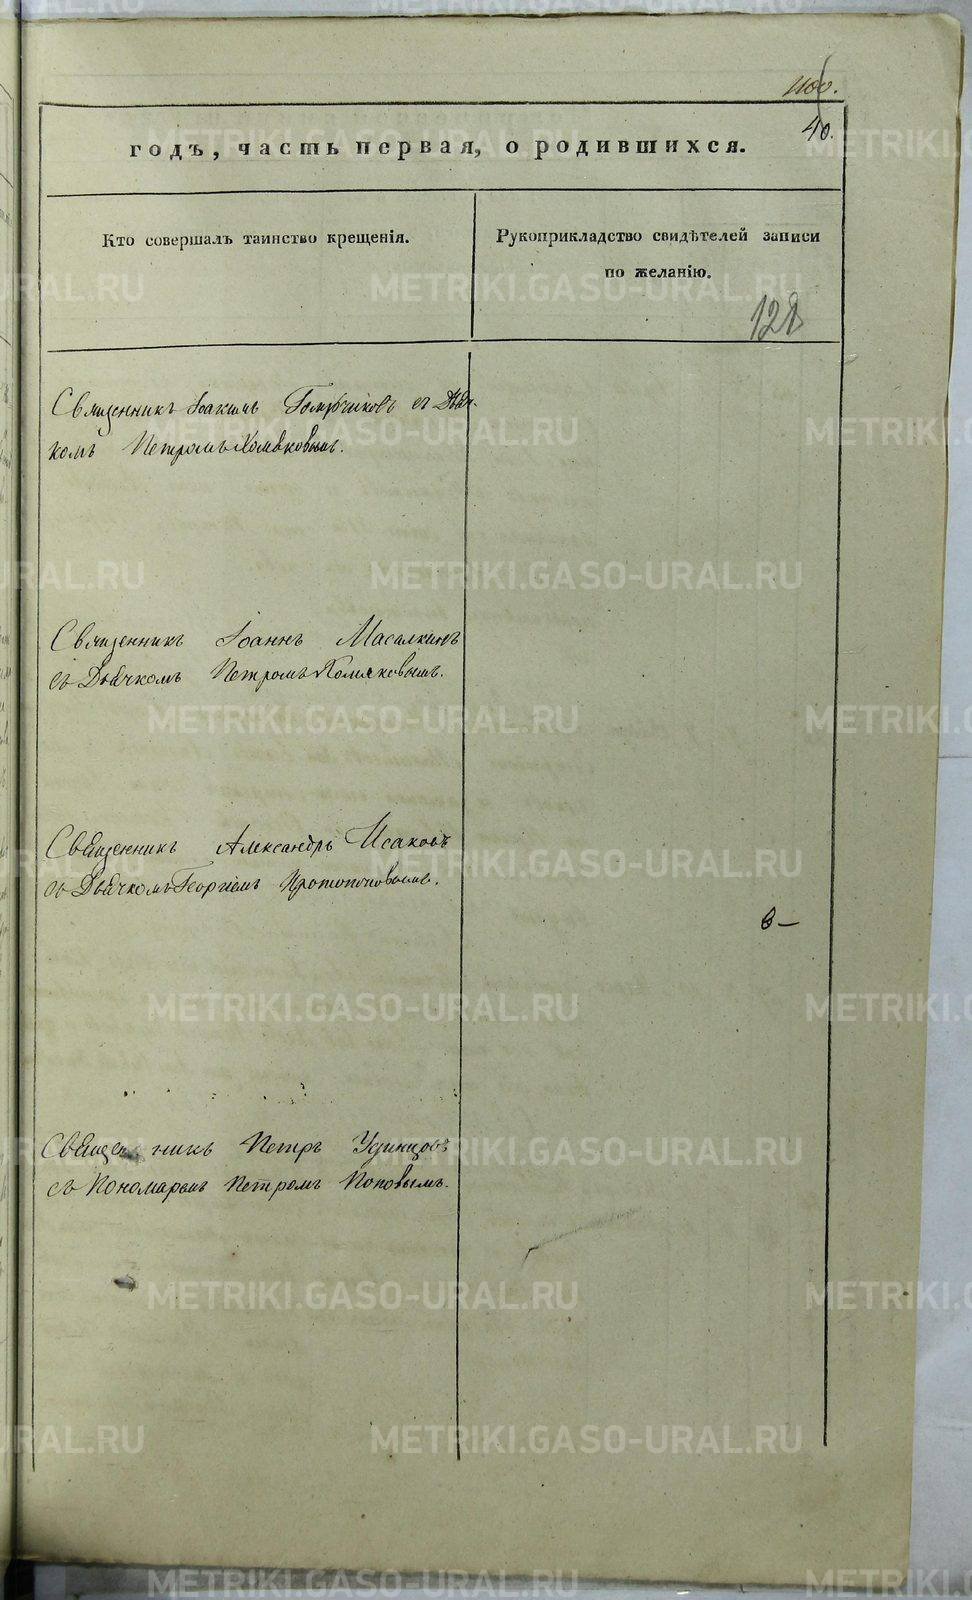 40.
годъ, часть первая, о родившихся.
Кто совершалъ таинство крещенія.
Рукоприкладство свидѣтелей записи
по желанію.
128
Священникъ Іоакимъ съ Дьяч-
комъ Петромъ Хомяковымъ.
Священникъ Іоаннъ Масалкинъ
съ Дьячкомъ Петромъ Хомяковымъ.
Священникъ Александръ Исаковъ
съ Дьячкомъ Георгіемъ Протопоповымъ.
в –
Священникъ Петръ Удинцовъ
съ Пономаремъ Петромъ Поповымъ.
METRIKI.GASO-URAL.RU